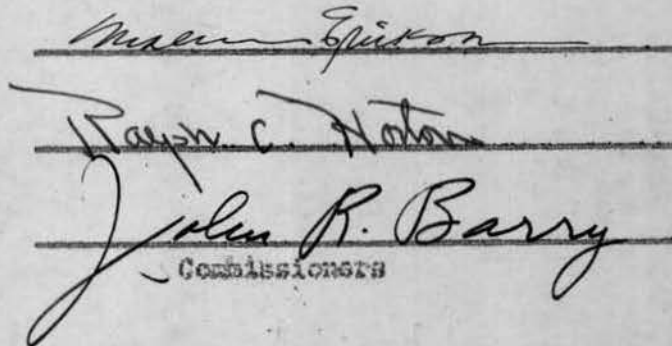 Malcolm Erickson
Ralph C. Horton
John R. Barry
Commissioners